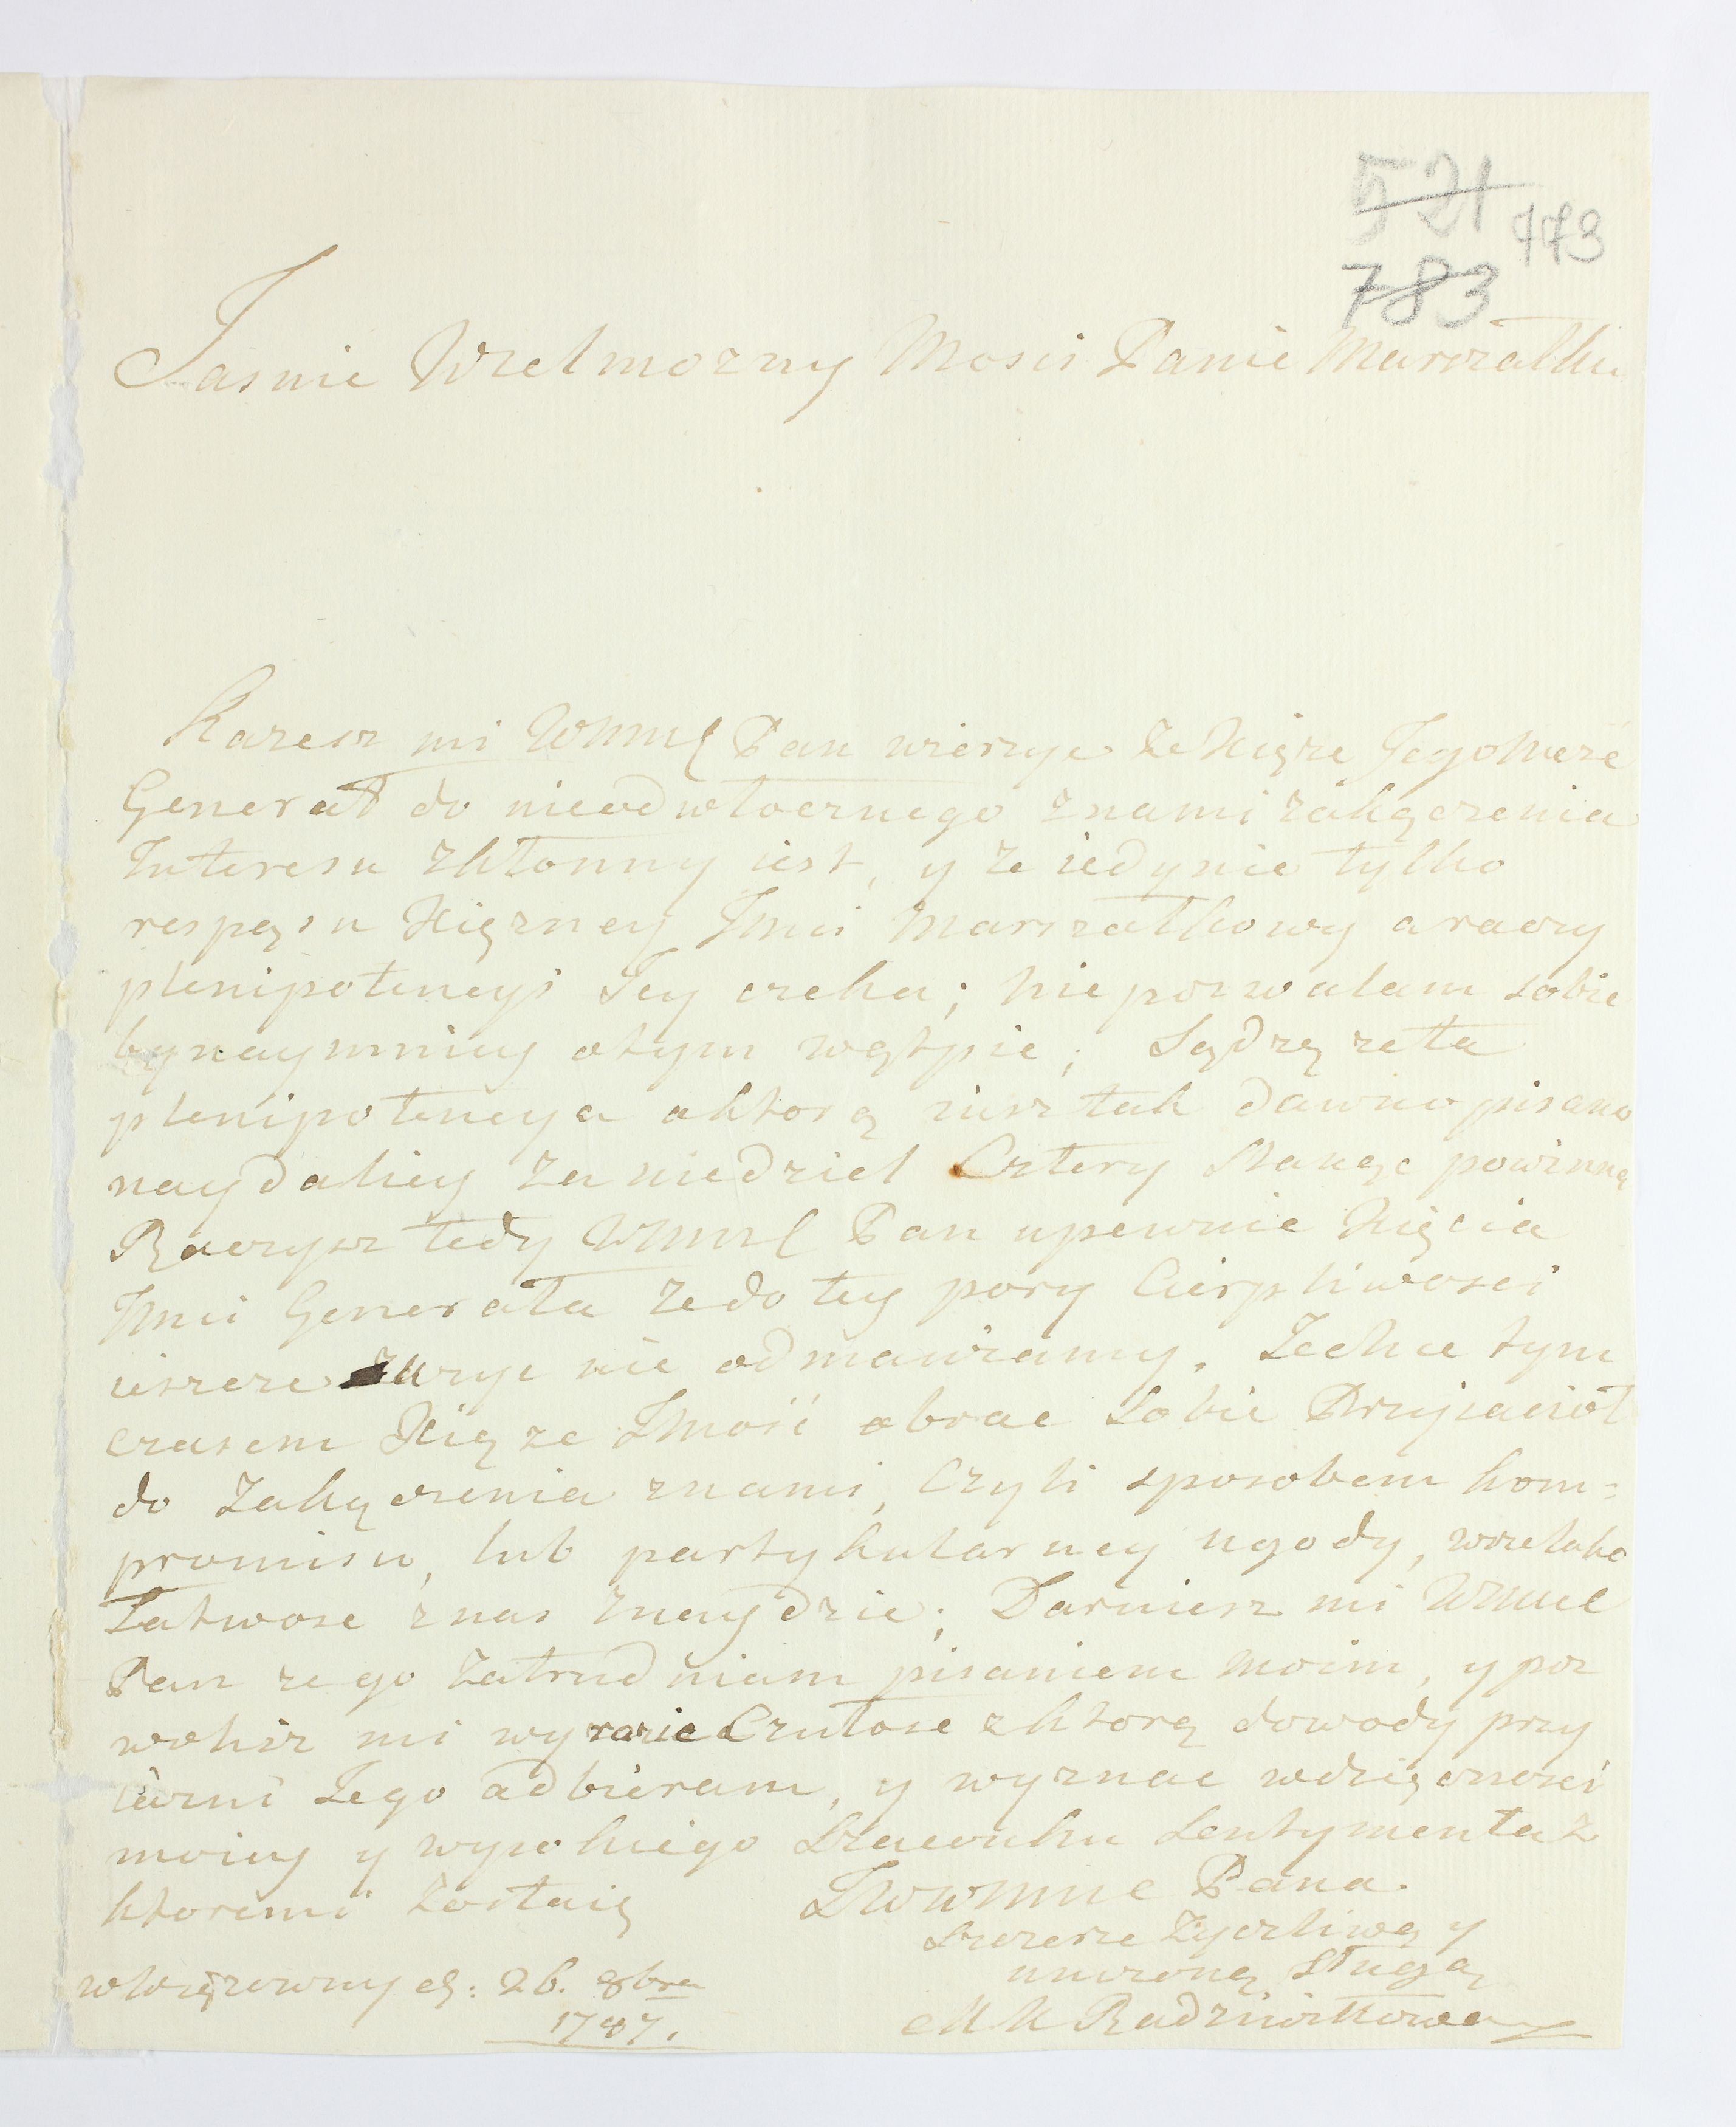 521
473
783
Jasnie Wielmozny Mosci Panie Marszałku
Kazesz mi WMM Pan wierzyc ze Xiąze Jegomość
Generał do nieodwłocznego znami zakączenia
Interesu zkłonny iest, y ze iedynie tylko
respąsu Xięzney Jmci Marszałkowy a raczy
plenipotencyi Jey czeka; nie pozwalam sobie
bynaymniey otym wątpic; Sądzę ze ta
plenipotencya aktorą iusz tak dawno pisano
naydaliey za niedziel Cztery stanąc powinna
Raczysz tedy WMM Pan upewnic Xięcia
Jmci Generała ze do tey pory Cierpliwosci
ieszcze uzyc nie odmawiamy. Zechce tym
czasem Xiąze Jmość obrac sobie Przyiacioł
do Zakączenia znami, czyli sposobem kom=
promisu, lub partykularney ugody, wszelako
Łatwosc znas znaydzie; Daruiesz mi WMM
Pan ze go zatrudniam pisaniem moim, y poz
wolisz mi wyrazic Czułosc zktorą dowody przy
iazni Jego odbieram, y wyznac wdzięcznosci
moiey y wysokiego Szacunku Sentymenta z
ktoremi zostaię
Pana
szczerze Zyczliwą y
unizoną Sługą
MM Radziwiłłowa
wWęgrowny d: 26. 8bra
1787.